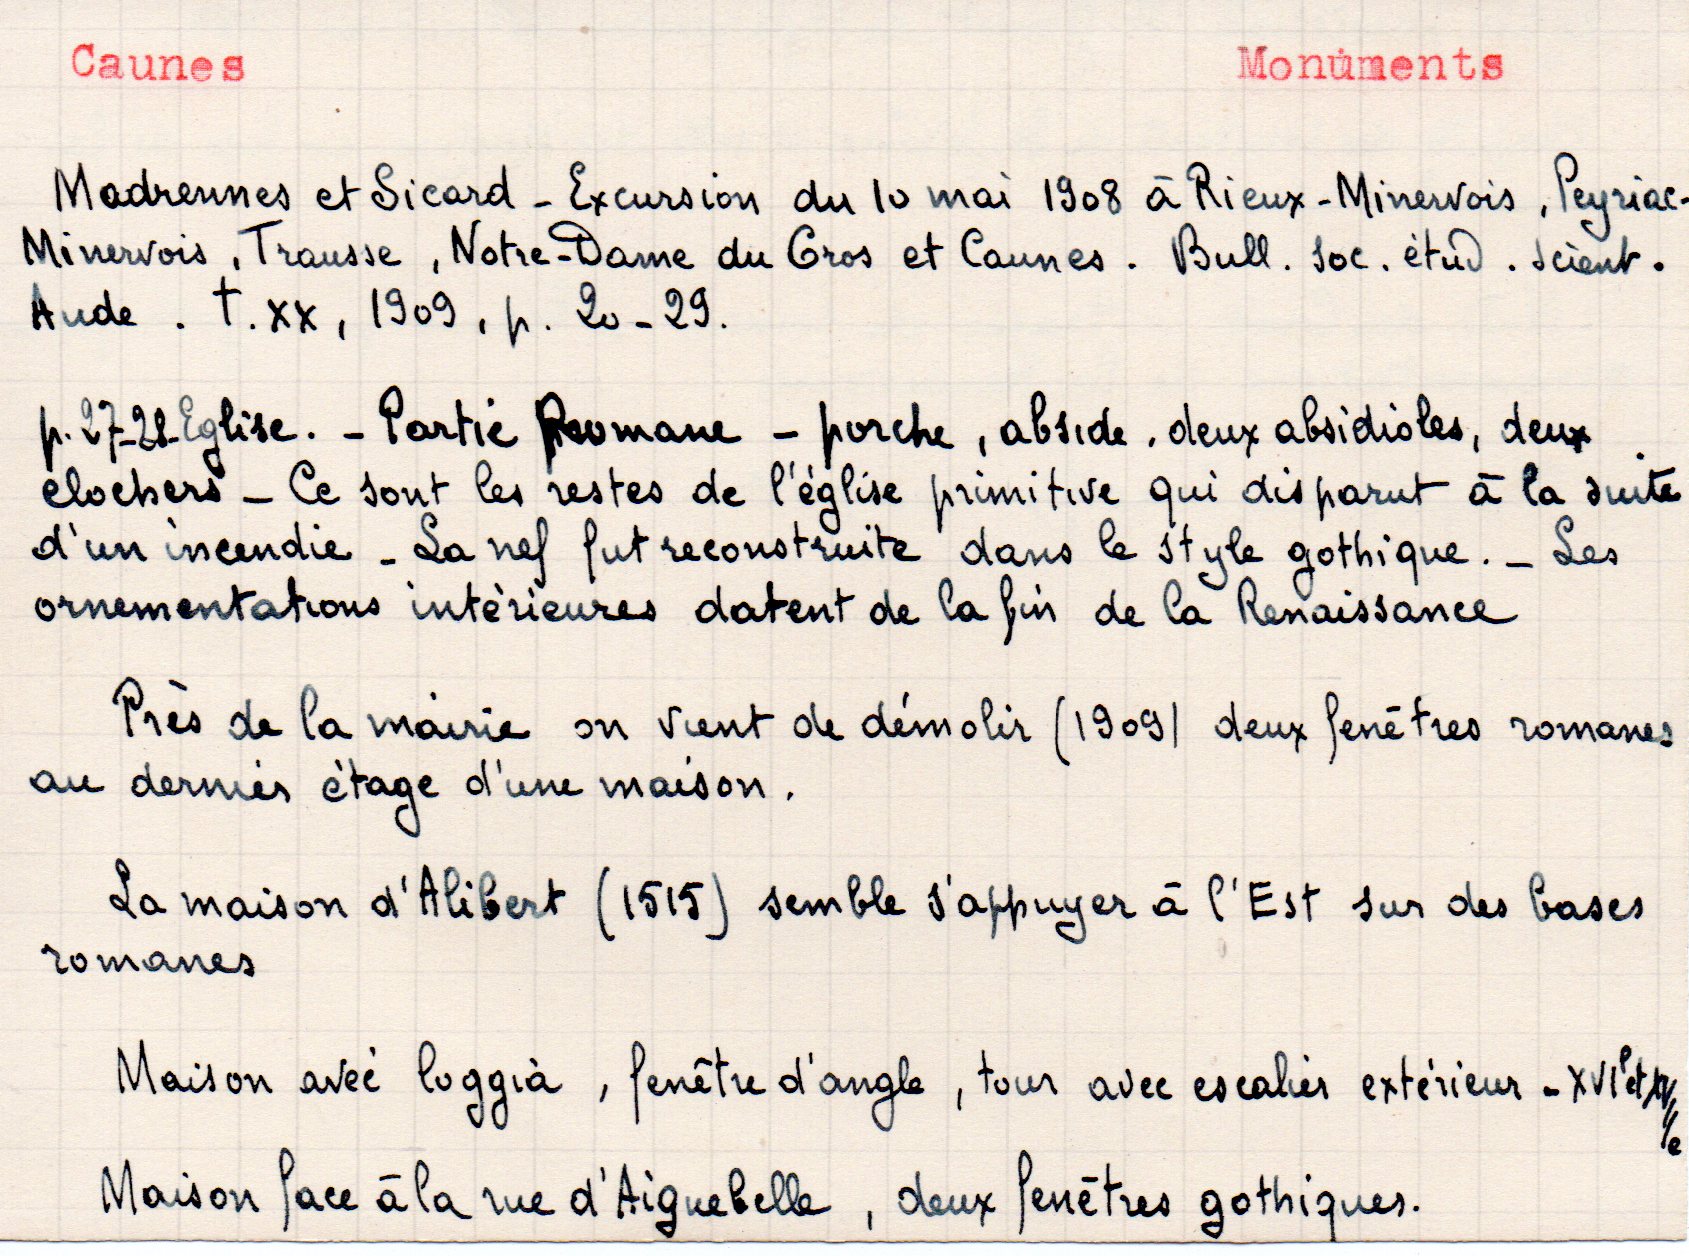 Caunes Monuments
Madrennes et Sicard - Excursion du 10 mai 1908 à Rieux-Minervois, Peyriac-
Minervois, Trausse, Notre-Dame du Cros et Caunes. Bull. Soc. étud. scient.
Aude. T. XX, 1909, p. 20-29.
p. 27-28 - Eglise. - Partie Romane - porche, abside, deux absidioles, deux
clochers - Ce sont les restes de l'église primitive qui disparut à la suite
d'un incendie - La nef fut reconstruite dans le style gothique. - Les
ornementations intérieures datent de la fin de la Renaissance
Près de la mairie on vient de démolir (1909) deux fenêtres romanes
au dernier étage d'une maison.
La maison d'Alibert (1515) semble s'appuyer à l'Est sur des bases
romanes
Maison avec loggia, fenêtre d'angle, tour avec escalier extérieur - XVIe et XVIIe
Maison face à la rue d'Aiguebelle, deux fenêtres gothiques.